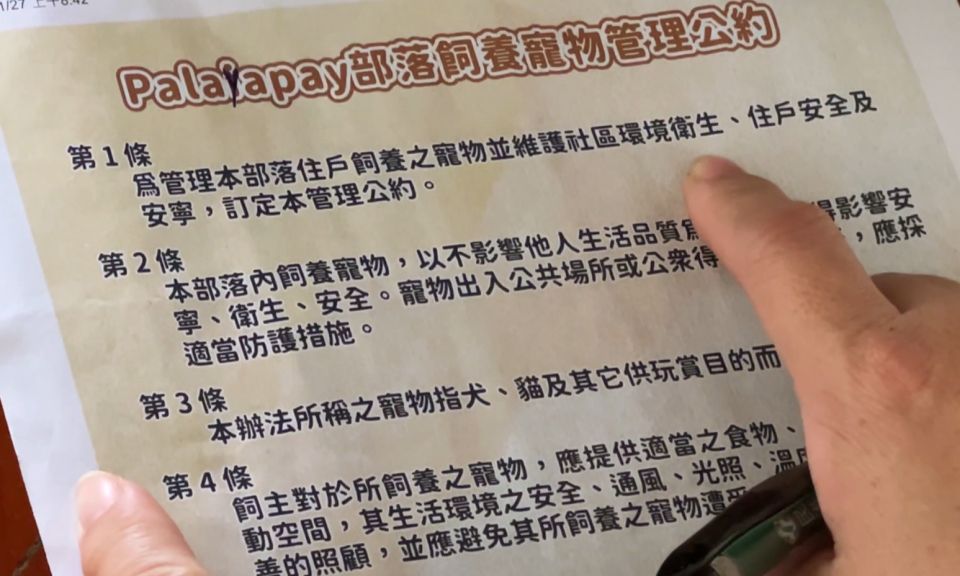 1/27 上午8:42
Palayapay部落飼養寵物管理公約
第1條
為管理本部落住戶飼養之寵物並維護社區環境衛生、住戶安全及
安寧，訂定本管理公約。
第2條
本部落內飼養寵物，以不影響他人生活品質為 得影響安
寧、衛生、安全。寵物出入公共場所或公眾得 ，應採
適當防護措施。
第3條
本辦法所稱之寵物指犬、貓及其它供玩賞目的而
第4條
飼主對於所飼養之寵物，應提供適當之食物、
動空間，其生活環境之安全、通風、光照、溫
善的照顧，並應避免其所飼養之寵物遭受